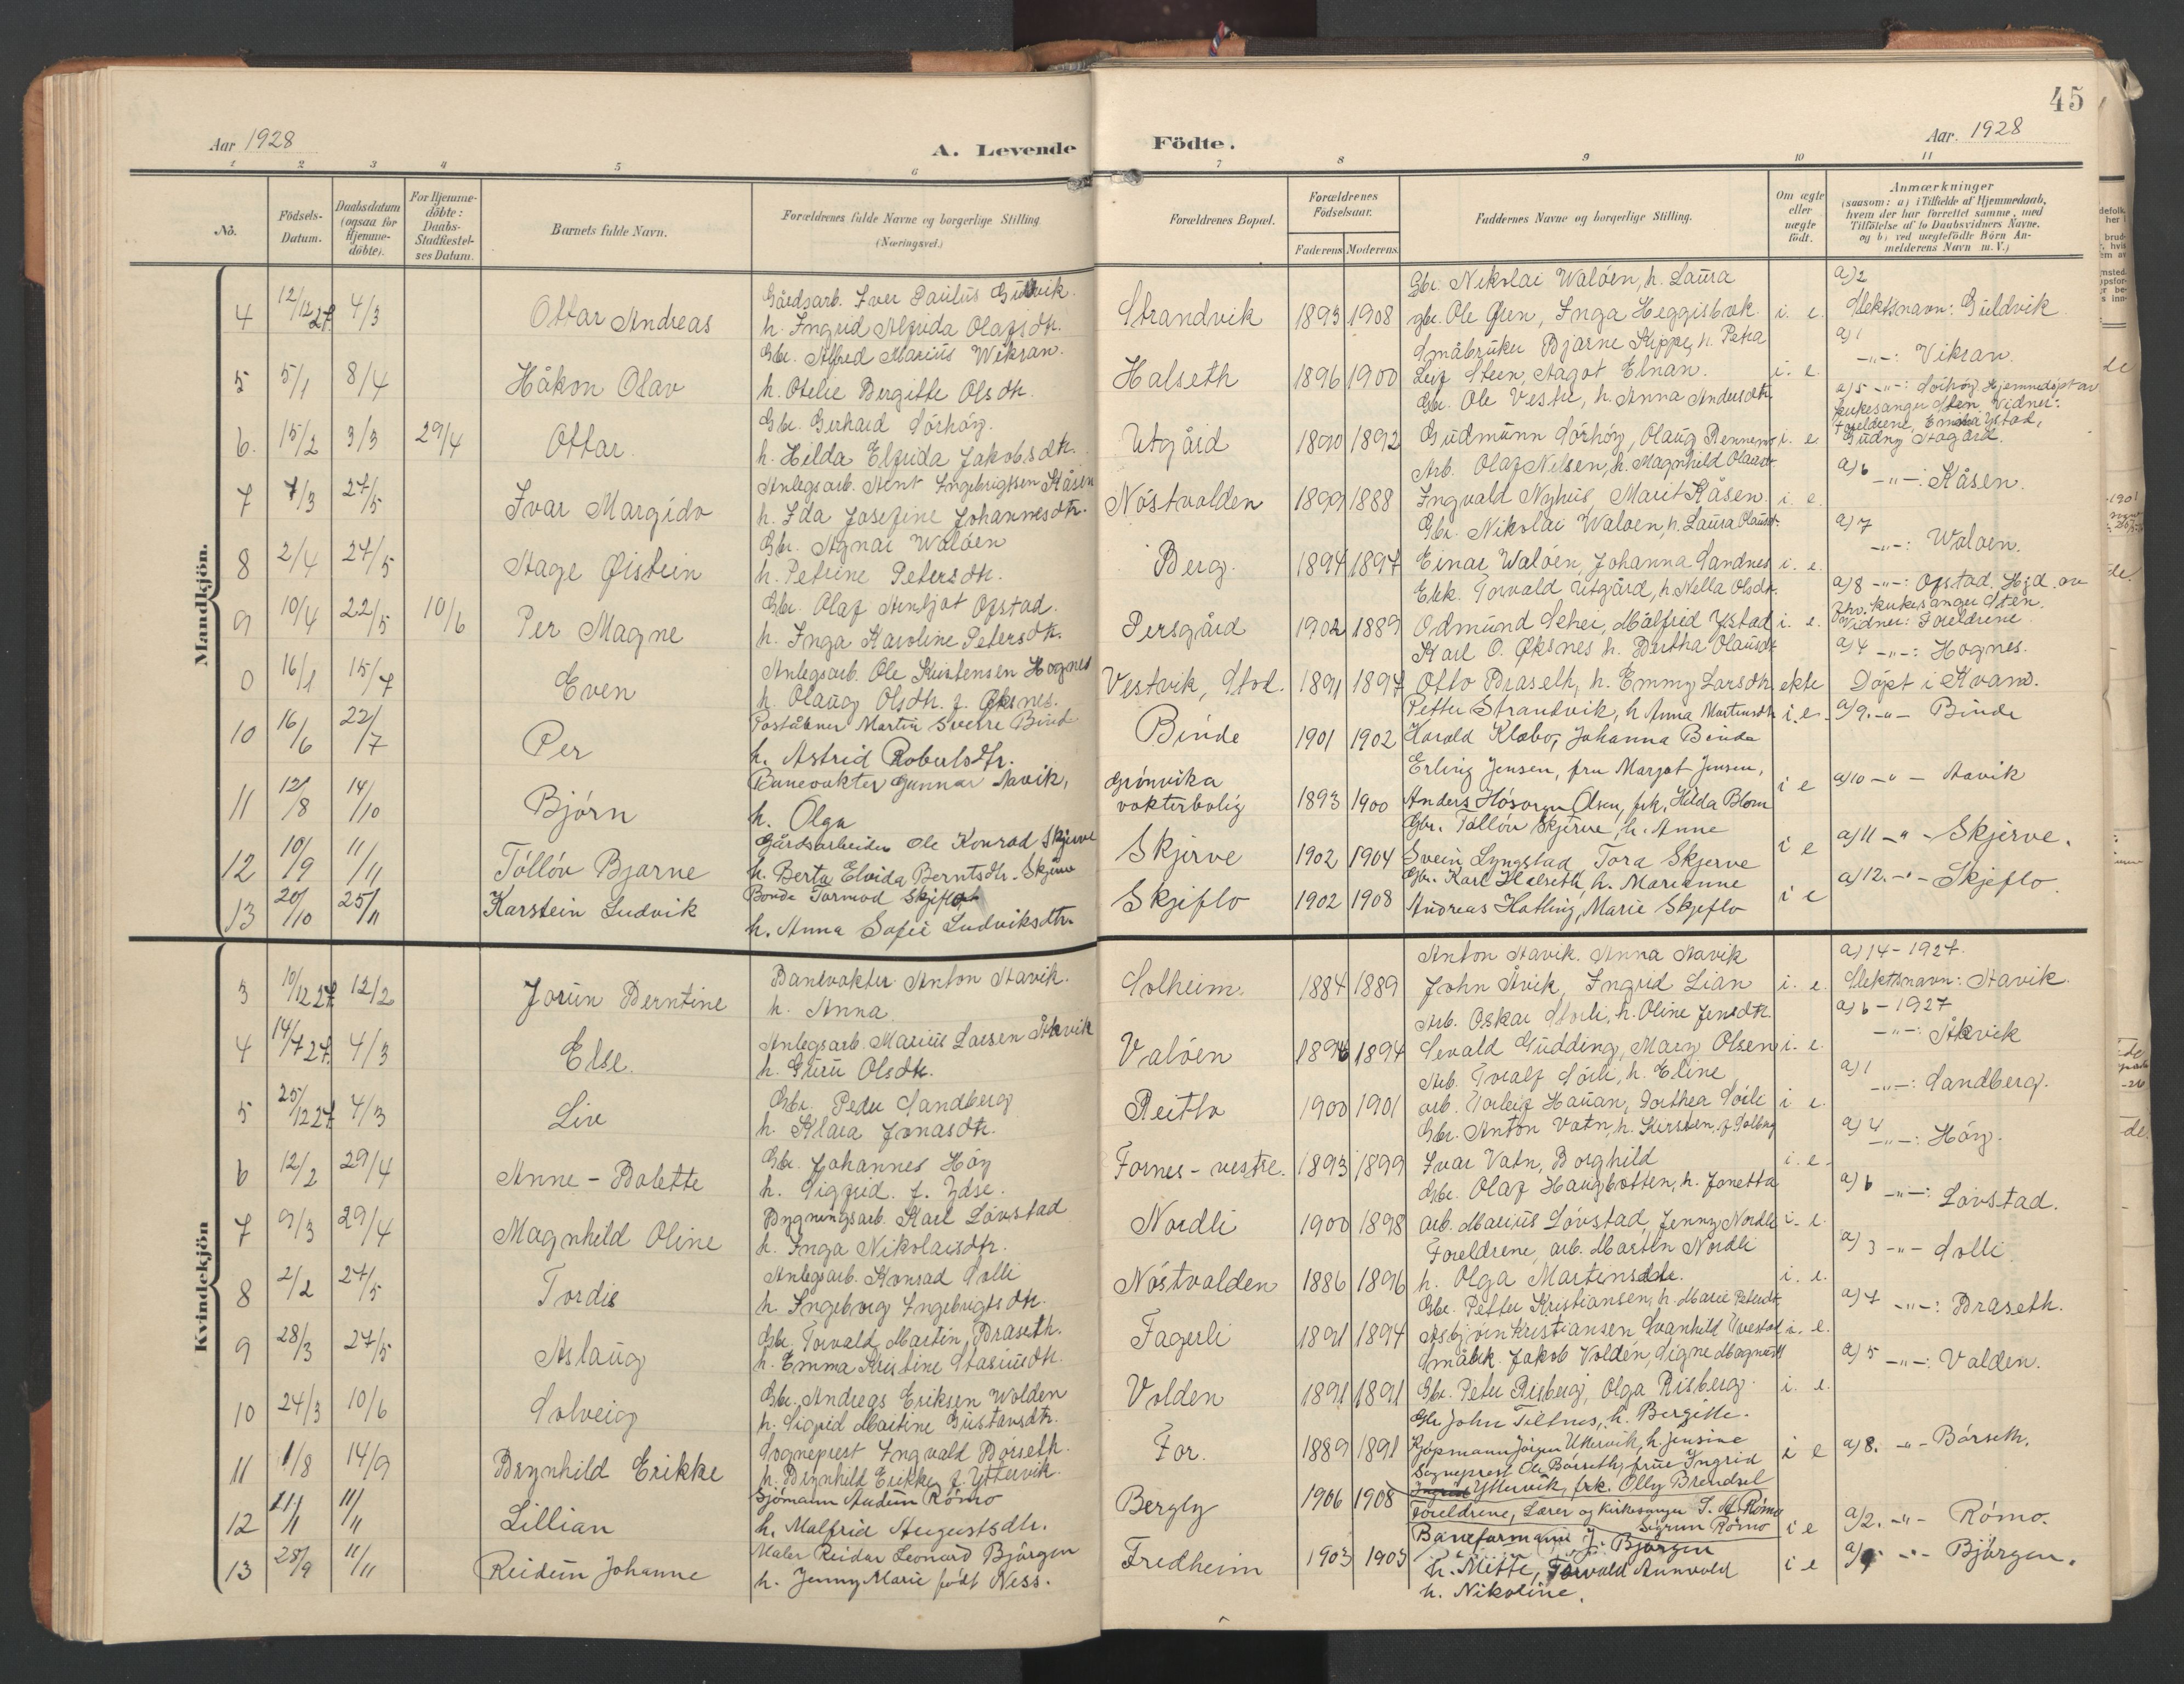 45
Aar 1928
A. Levende Födte.
Aar. 1928
1 2 3 4 5 6 7 8 9 10 11
No.
Födsels-Datum.
Daabsdatum (ogsaa for Hjemme-döbte).
For Hjemme-döbte: Daabs-Stadfæstel-ses Datum.
Barnets fulde Navn.
Forældrenes fulde Navne og borgerlige Stilling. (Næringsvei.)
Forældrenes Bopæl.
Forældrenes Födselsaar.
Faderens Moderens
Faddernes Navne og borgerlige Stilling.
Om ægte eller uægte födt.
Anmærkninger
(saasom: a) i Tilfælde af Hjemmedaab, hvem der har forrettet samme, med Tilföielse af to Daabsvidners Navne, og b) ved uægtefödte Börn An-melderens Navn m. V.)
Mandkjön.
4 12/12 27 4/3 Ottar Andreas
Gårdsarb. Iver Paulus
h. Ingrid Alfrida Olafsdtr.
Strandvik 1893 1908
Gbr. Nikolai Walöen, h. Laura
gbr. Ole Gren, Inga Heggisbak i. e.
a) 2
Slektsnavn: Guldvik
5 5/1 8/4 Håkon Olav
Gbr. Alfred Marius Wikran.
h. Otelie Bergitte Olsdtr.
Halseth 1896 1900
Småbruker Bjarne Kippe, h. Petra
Leif Steen, Aagot Elnan. i. e.
a) 1
-"-: Vikran.
6. 15/2 3/3 29/4 Ottar
Gbr. Gerhard Sörhöy.
h. Hilda Elfrida Jakobsdtr.
Utgård 1890 1892
Gbr. Ole Vestre, h. Anna Andersdtr
Gudmunn Sörhöy, Olaug Rennemo i. e
a) 5 -"-: Sörhöy. Hjemmedöpt av
kirkesanger Sten. Vidner:
Foreldrene, Ystad,
Gudny Aagård.
7 7/3 27/5 Ivar Margido
Anlegsarb. Arnt Ingebrigtsen Kåsen
h. Ida Josefine Johannesdtr.
Nöstvolden 1899 1888
Arb. Olaf Nelsen, h. Magnhild Olausdtr.
Ingvald Nyhus, Marit Kåsen. i. e.
a) 6
-"-: Kåsen.
8 2/4 27/5 Aage Øistein
Gbr. Agnar Walöen
h. Petrine Petersdtr.
Berg. 1894 1897
Gbr. Nikolai Waloen, h. Laura Olausdtr.
Einar Walöen, Johanna Sandnes i. e.
a) 7
-"-: Waloen.
9 10/4 22/5 10/6 Per Magne
Gbr. Olaf Arntljot Opstad.
h. Inga Karoline Petersdtr.
Persgård 1902 1889
Torvald Utgård, h. Nella Olsdtr.
Odmund Seher, Målfrid Ystad i. e.
a) 8 -"-: Opstad. Hjd. av
kirkesanger Sten.
Vidner: Foreldrene.
0 16/1 15/7 Even
Anlegsarb. Ole Kristensen Hognes
h. Olaug Olsdtr. f. Øksnes.
Vestvik, Stod. 1891 1897
Karl O. Øksnes h. Bertha Olausdtr
Otto Braseth, h. Emmy Larsdtr. ekte
a) 4 -"-: Hognes.
Döpt i Kvam.
10 16/6 22/7 Per
Poståbner Martin Sverre Bind
h. Astrid Robertsdtr.
Binde 1901 1902
Petter Strandvik, h Anna Martinsdtr i. e.
Harald Klæbo, Johanna Binde
a) 9. -"- Binde
11 12/8 14/10 Björn
Banevokter Gunnar Aavik,
h. Olga
Grönvika vokterbolig 1893 1900
Erling Jensen, fru Margot Jensen, i e
Anders Olsen, frk. Hilda Blom
a) 10 -"- Aavik
12 10/9 11/11 Tóllöv Bjarne
Gårdsarbeider Ole Konrad Skjerve
h. Berta Elvida Berntsdtr. Skjerve
Skjerve 1902 1904
Gbr. Tóllöv Skjerve, h. Anne i e
Svein Lyngstad, Tora Skjerve
a) 11 -"- Skjerve.
13 20/10 25/11 Karstein Ludvik
Bonde Tormod Skjeflo
h. Anna Sofie Ludviksdtr.
Skjeflo 1902 1908
Gbr. Karl Halseth, h. Marianne i e
Andreas Hatling, Marie Skjeflo
a) 12. -"- Skjeflo.
Kvindekjön
3 10/12 27 12/2 Jorun Berntine
Banevokter Anton Aavik.
h. Anna.
Solheim. 1884 1889
Anton Aavik. Anna Aavik
John Åvik, Ingrid Lian i. e.
a) 14 - 1927.
Slektsnavn: Aavik.
4 14/7 27. 4/3 Else.
Anlegsarb. Marius Larsen Åkvik
h. Guru Olsdtr.
Valöen 1896 1894
Arb. Oskar Sörli, h. Oline Jensdtr.
Sevald Gudding, Mary Olsen i. e.
a) 6 - 1927
-"-: Åkvik
5 25/12 27 4/3 Liv
Gbr. Peder Sandberg
h. Klara Jonasdtr.
Reitlo 1900 1901
Arb. Toralf Sörli, h. Eline
arb. Torleif Hauan, Dorthea Sörli i e.
a) 1
-"-: Sandberg.
6 12/2 29/4 Anne-Bolette
Gbr. Johannes Höy
h. Sigfrid. f. Ydse.
Fornes-vestre. 1893 1899
Gbr. Anton Vatn, h. Kirsten, f. Solberg
Ivar Vatn, Borghild i. e.
a) 4
-"-: Höy.
7 9/3 29/4 Magnhild Oline
Bygningsarb. Karl Lövstad
h. Inga Nikolaisdtr.
Nordli 1900 1898
Gbr. Olaf Haugbotten, h. Jonetta
arb. Marius Lövstad, Jenny Nordli i. e.
a) 6
-"-: Lövstad.
8 2/2 27/5 Tordis
Anlegsarb. Konrad Solli
h. Ingeborg Ingebrigtsdtr.
Nöstvolden 1886 1896
Foreldrene, arb. Martin Nordli
h. Olga Martensdtr. i. e.
a) 3 -"- Solli
9 28/3 27/5 Aslaug
Gbr. Torvald Martin Braseth.
h. Emma Kristine Stasiusdtr.
Fagerli 1891 1894
Gbr. Petter Kristiansen, h Marie Petersdtr.
Asbjörn Kristiansen, Svanhild i. e.
a) 7 -"-: Braseth.
10 24/3 10/6 Solveig
Gbr. Andreas Eriksen Wolden
h. Sigrid Martine Gustavsdtr.
Volden 1891 1891
Småbrk. Jakob Volden, Signe
Gbr. Peter Risberg, Olga Risberg. i. e.
a) 5 -"-: Valden.
11 1/8 14/9 Brynhild Erikke
Sogneprest Ingvald Börseth.
h. Brynhild Erikke f. Yttervik.
For. 1889 1891
Gbr John Tiltnes, h. Bergitte.
Kjöpmann Jörgen Uttervik, h. Jensine i e
Sogneprest Ole Börseth, frue Ingrid
Yttervik, frk. Olly Brendsel
a) 8. -"- Börseth.
12 21/1 11/11 Lillian
Sjömann Audun Römo
h. Malfrid Augustsdtr.
Bergly 1906 1908
Foreldrene, Lærer og Kirkesanger Römo
Sigrun Römo i e
a) 2. -"- Römo.
13 28/9 11/11 Reidun Johanne
Maler Reidar Leonard Björgen
h. Jenny Marie födt Ness.
Fredheim 1903 1903
Baneformann J. Björgen
h. Mette, Torvald Aunvold i e
h. Nikoline.
-"- Björgen.